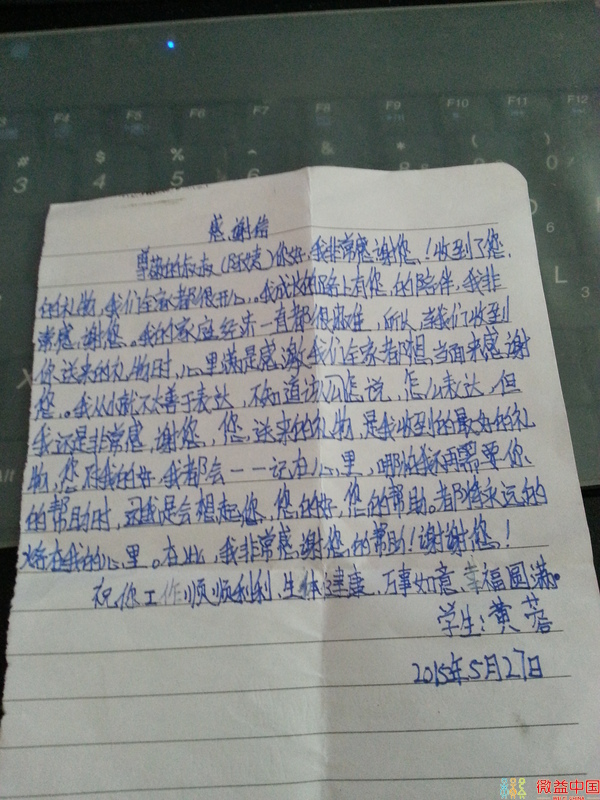 F5
F6
F7
F8
F9
F10
F11
F12
#
3
$
4
%
5
6
8
(
)
0
L
Alt
感谢信
尊敬的叔叔你好,我非常感谢您!收到了您
的礼物,我们全家都很开心,我成长的路上有您的陪伴,我非
常感谢您。我的家庭经济一直都很困难,所以,当我们收到
你送来的礼物时,心里满是感激,我们全家都想当面来感谢
您。我从小就不太善于表达,不知道该怎说,怎么表达,但
我还是非常感谢您,您送来的礼物,是我收到的最好的礼
物,您对我的好,我都会一一记在心里,哪怕我不再需要你
的帮助时,还是会想起您,您的好,您的帮助。都将永远的
在我的心里。在此,我非常感谢您的帮助!谢谢您!
祝你工作顺顺利利,生体健康,万事如意,幸福圆满。
学生:黄蓉
2015年5月27日
微益中国